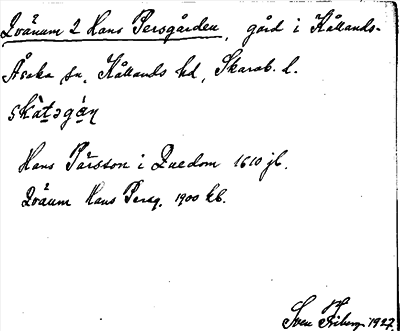 Qvänum 2 Hans Persgården, gård i Kållands-
Åsaka sn, Kållands hd, Skarab. l.
Hans Pärsson i Quedom 1610 jb.
Qvänum Hans Persg. 1900 kb.
Sven Friberg 1927.